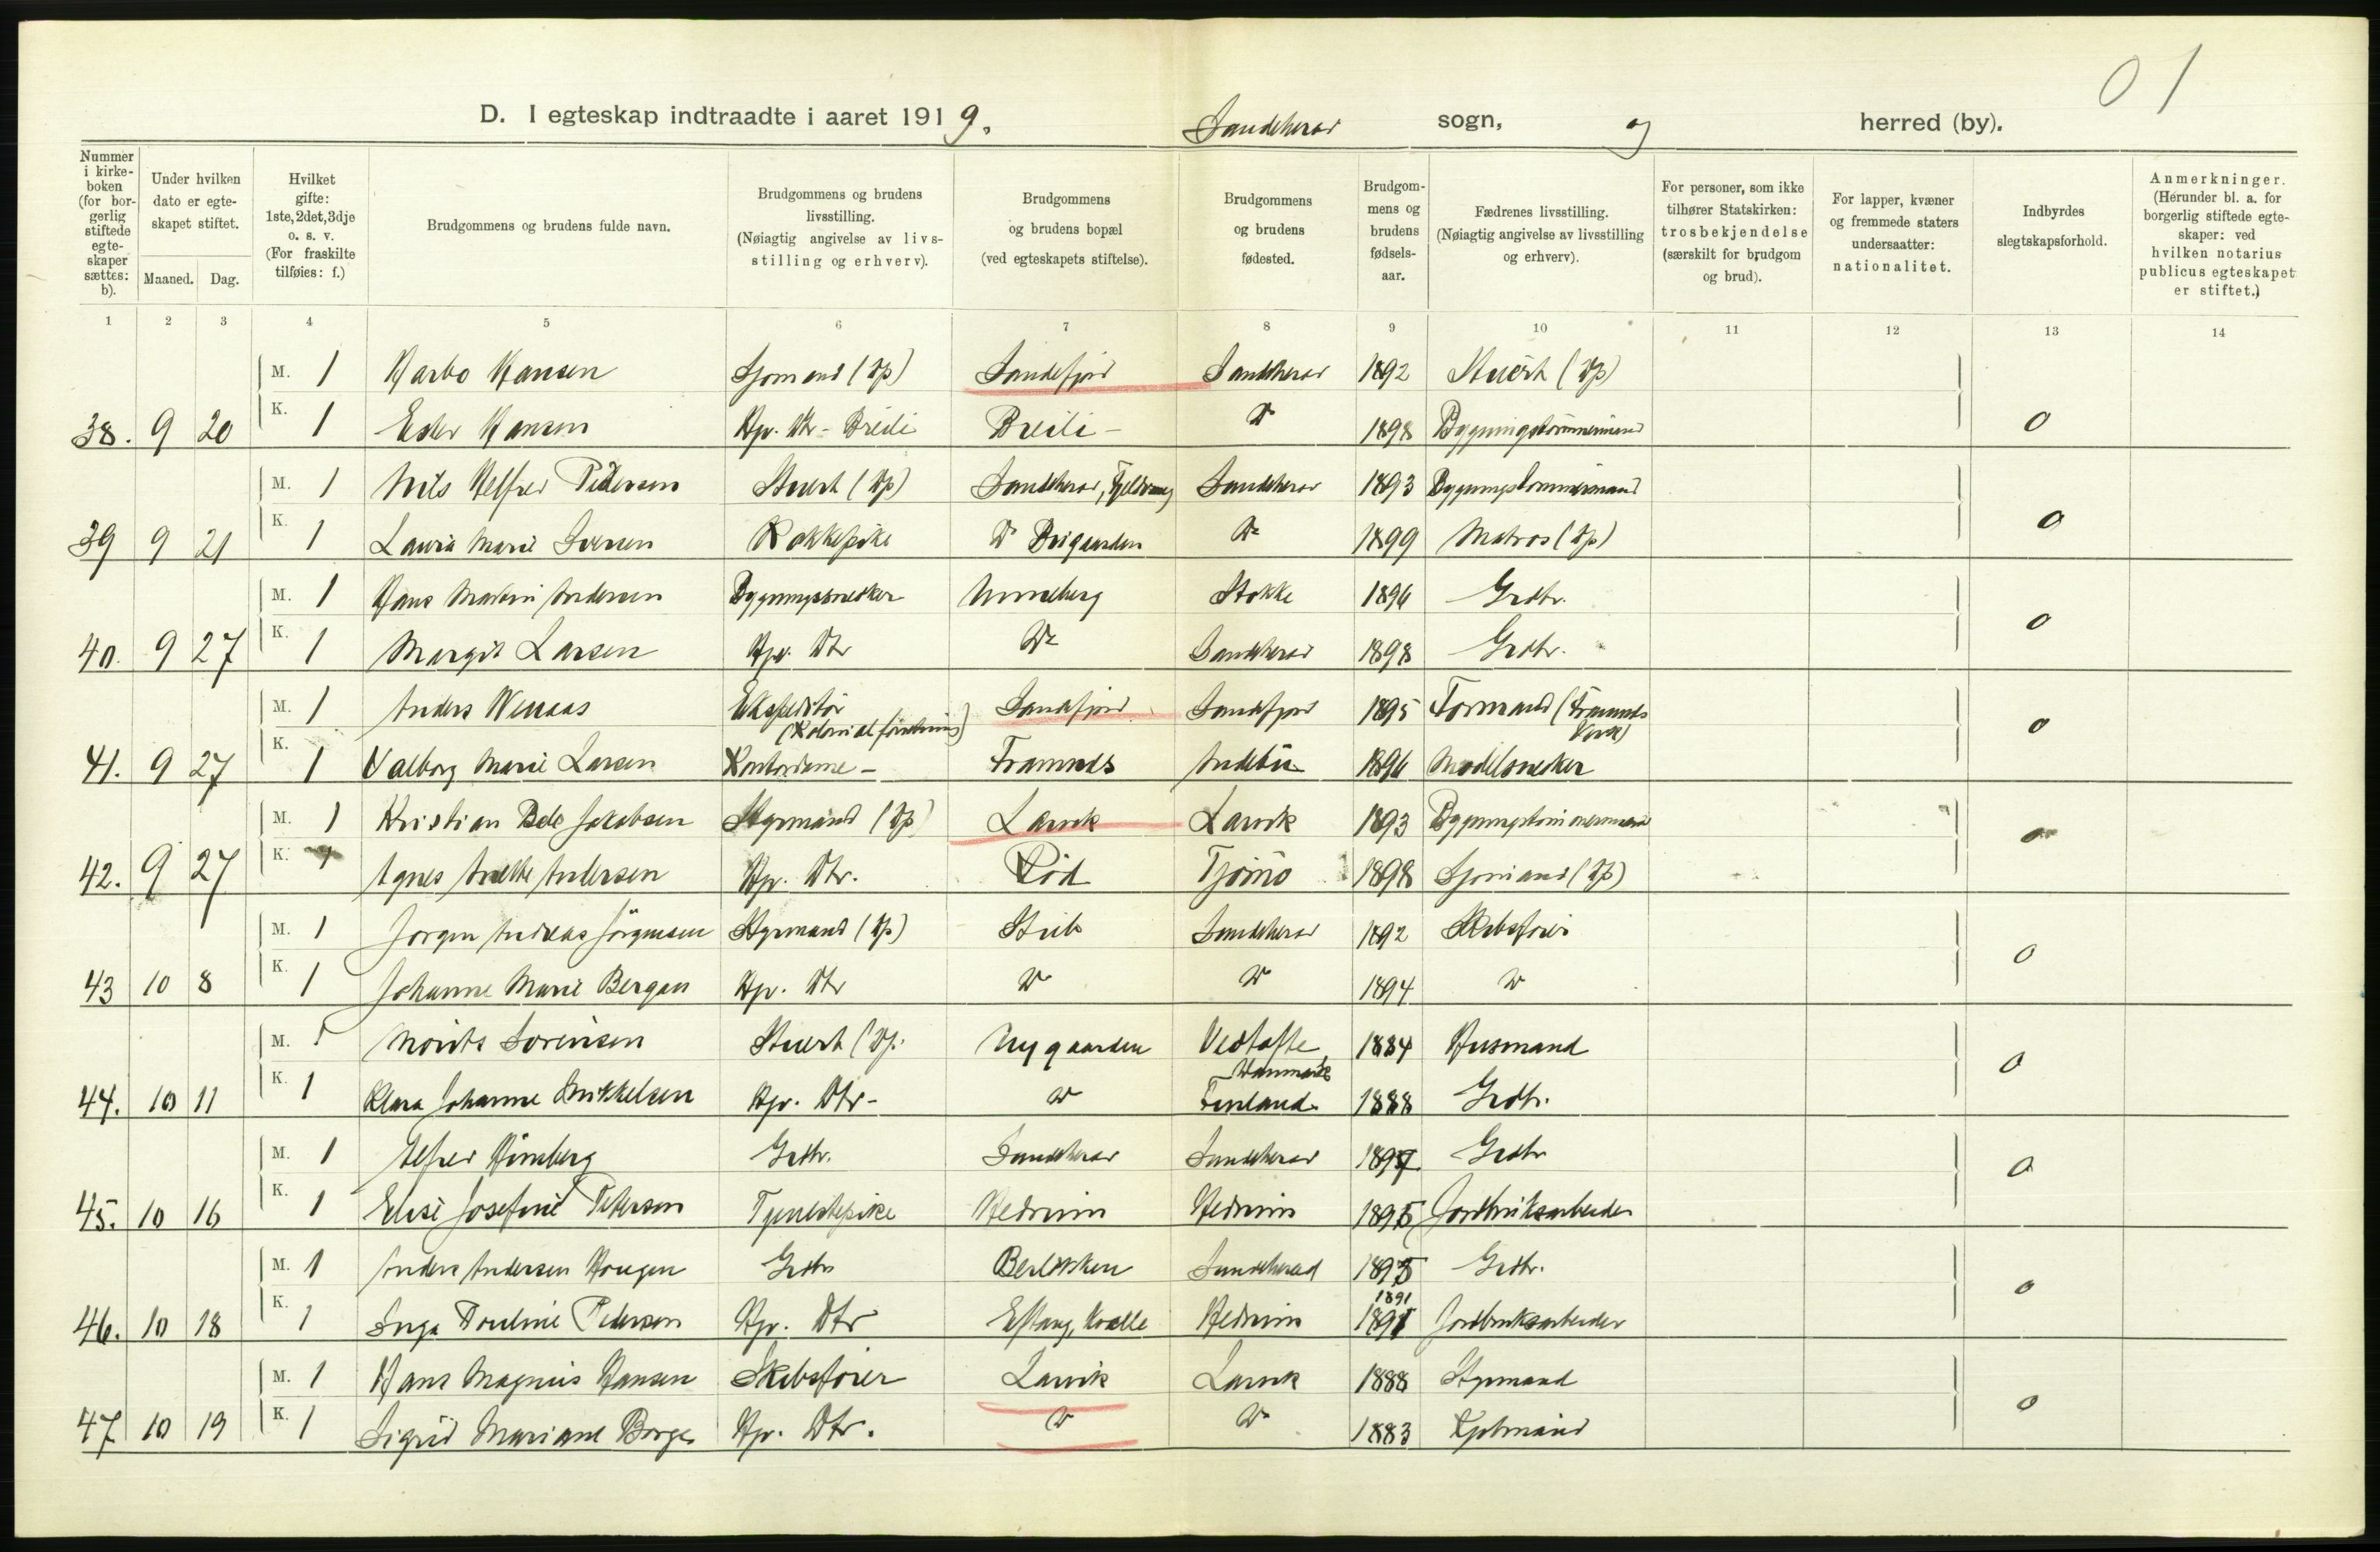 01
D. I egteskap indtraadte i aaret 1919. Sandeherad sogn, og herred (by).
Nummer i kirkeboken (for borgerlig stiftede egteskaper sættes: b).
Under hvilken dato er egteskapet stiftet.
Maaned. Dag.
Hvilket gifte: 1ste, 2det, 3dje o. s. v. (For fraskilte tilføies: f.)
Brudgommens og brudens fulde navn.
Brudgommens og brudens livsstilling. (Nøiagtig angivelse av livsstilling og erhverv).
Brudgommens og brudens bopæl (ved egteskapets stiftelse).
Brudgommens og brudens fødested.
Brudgommens og brudens fødselsaar.
Fædrenes livsstilling. (Nøiagtig angivelse av livsstilling og erhverv).
For personer, som ikke tilhører Statskirken: trosbekjendelse (særskilt for brudgom og brud).
For lapper, kvæner og fremmede staters undersaatter: nationalitet.
Indbyrdes slegtskapsforhold.
Anmerkninger. (Herunder bl. a. for borgerlig stiftede egteskaper: ved hvilken notarius publicus egteskapet er stiftet.)
1 2 3 4 5 6 7 8 9 10 11 12 13 14
M. 1 Harbo Hansen Sjømand (Dp) Sandefjord Sandeherad 1892 Stuert (Dp)
38. 9 20 K. 1 Ester Hansen Hp. Dtr - Breili Breili - Do 1898 Bygningstømmermand 0
M. 1 Nils Helfred Pedersen Stuert (Dp) Sandeherad, Fjeldvang Sandeherad 1893 Bygningstømmermand
39 9 21 K. 1 Laura Marie Iversen Kokkepike Do Prigaarden Do 1899 Matros (Dp) 0
M. 1 Hans Martin Andersen Bygningssnedker Unneberg Stokke 1896 Grdbr.
40. 9 27 K. 1 Margit Larsen Hp. Dtr Do Sandeherad 1898 Grdbr. 0
M. 1 Anders Wenaas Ekspeditør (Kolonialforretning) Sandefjord Sandefjord 1895 Formand (Framnæs Værk)
41. 9 27 K. 1 Valborg Marie Larsen Kontordame - Framnæs Andebu 1896 Modelsnedker 0
M. 1 Kristian Bele Jakobsen Styrmand (Dp) Larvik Larvik 1893 Bygningstømmermand
42. 9 27 K. 1 Agnes Anette Andersen Hp. Dtr. Rød Tjømø 1898 Sjømand (Dp) 0
M. 1 Jørgen Andreas Jørgensen Styrmand (Dp) Stub Sandeherad 1892 Skibsfører
43 10 8 K. 1 Johanne Marie Bergan Hp. Dtr Do Do 1894 Do 0
M. 1 Morits Sørensen Stuert (Dp. Nygaarden Vedtofte, Danmark 1884 Husmand
44. 10 11 K. 1 Klara Johanne Mikkelsen Hp. Dtr - Do Finland 1888 Grdbr. 0
M. 1 Alfred Himberg Grdbr. Sandeherad Sandeherad 1897 Grdbr
45. 10 16 K. 1 Elise Josefine Petersen Tjenestepike Hedrum Hedrum 1895 Jordbruksarbeider 0
M. 1 Anders Andersen Haugen Grdbr Sandeherad 1895 Grdbr.
46. 10 18 K. 1 Inga Pauline Pedersen Hp. Dtr Eftang, Kvelle Hedrum 1891 1891 Jordbruksarbeider 0
M. 1 Hans Magnus Hansen Skibsfører Larvik Larvik 1888 Styrmand
47 10 19 K. 1 Sigrid Mariane Borge Hp. Dtr. Do Do 1883 Kjøbmand 0